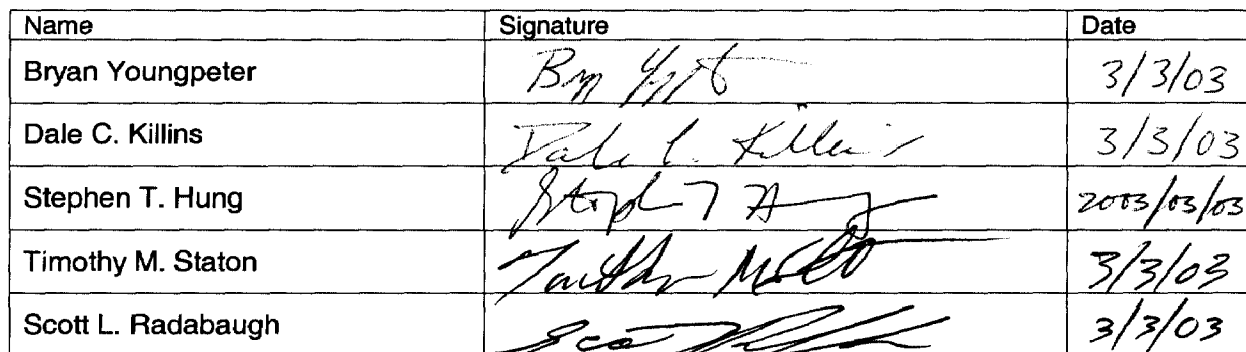 Name Signature Date
Bryan Youngpeter 3/3/03
Dale C. Killins Dale C. Killins 3/3/03
Stephen T. Hung Stephen T Hung 2003/03/03
Timothy M. Staton 3/3/03
Scott L. Radabaugh 3/3/03